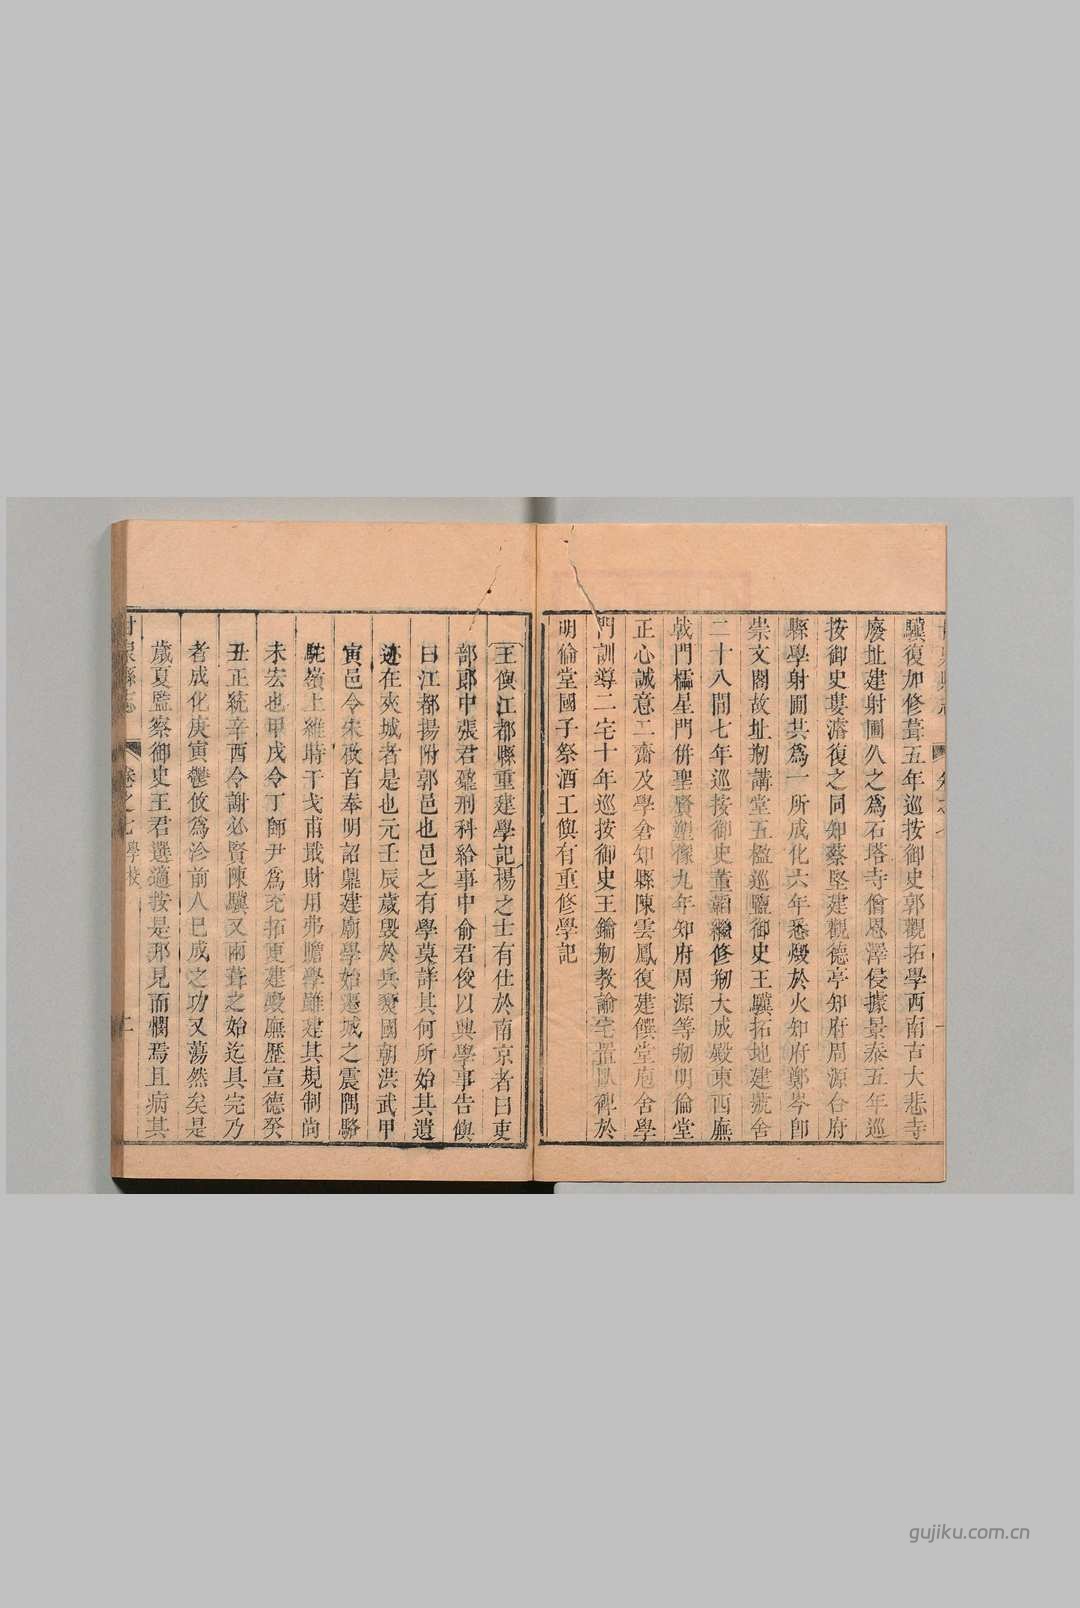 驥復加修葺五年巡按御史郭觀拓學西南古大悲寺
廢址建射圃久之爲石塔寺僧恩澤侵據景泰五年巡
按御史婁濬復之同知蔡堅建觀德亭知府周源合府
縣學射圃共爲一所成化六年悉燬於火知府鄭岑卽
崇文閣故址剏講堂五楹巡鹽御史王驥拓地建號舍
二十八間七年巡按御史董韜繼修剏大成殿東西廡
戟門櫺星門併聖賢塑像九年知府周源等剏明倫堂
正心誠意二齋及學倉知縣陳雲鳳復建饌堂庖舍學
門訓導二宅十年巡按御史王鑰剏教諭宅置臥碑於
明倫堂國子祭酒王㒜有重修學記
王㒜江都縣重建學記楊之士有仕於南京者曰吏
部郎中張君鼐刑科給事中俞君俊以興學事告㒜
曰江都揚附郭邑也邑之有學莫詳其何所始其遺
迹在夾城者是也元壬辰歲毀於兵燹國朝洪武甲
寅邑令朱敄首奉明詔鼎建廟學始遷城之震隅駱
駝嶺上維時干戈甫戢財用弗贍學雖建其規制尚
未宏也甲戌令丁師尹爲充拓更建夔廡歷宣德癸
丑正統辛酉令謝必賢陳驥又兩葺之始迄具完乃
者成化庚寅鬱攸爲沴前人巳成之功又蕩然矣是
歲夏監察御史王君選適按是邦見而憫焉且病其
甘泉縣志
卷之七學校
二